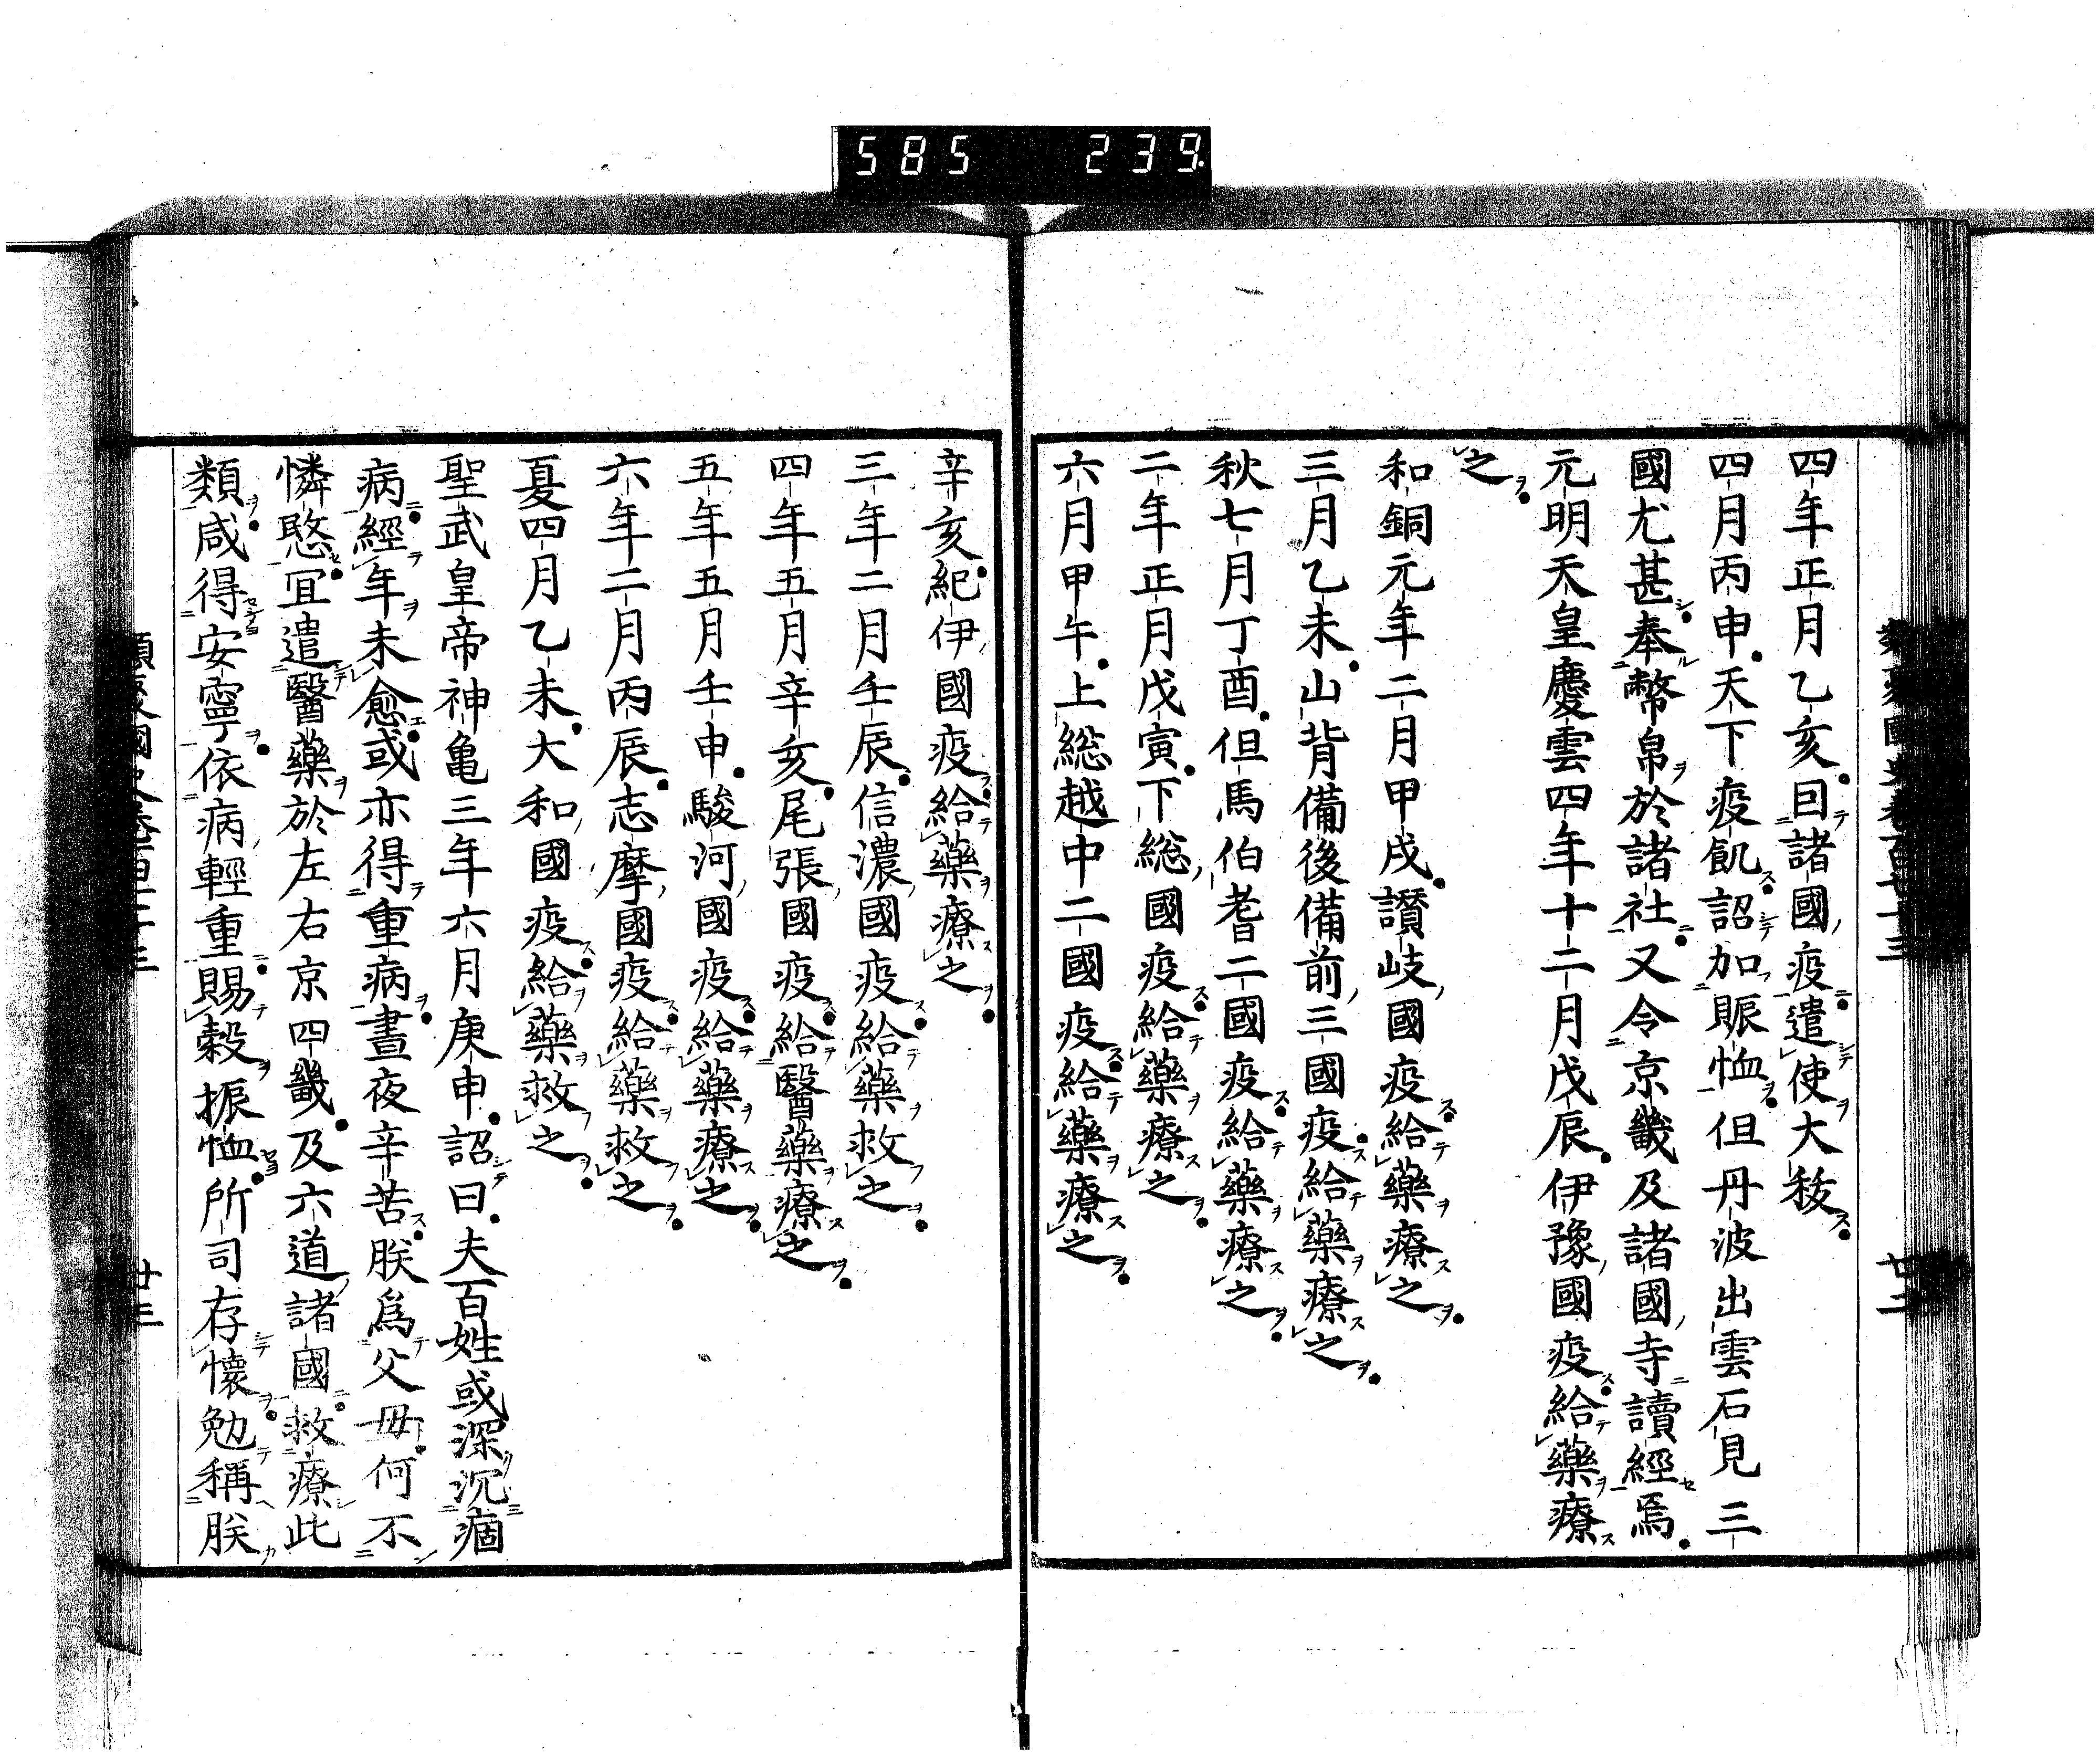 585 239
四年正月乙亥囙諸國疫遣使大秡
四月丙申天下疫飢詔加賑恤但丹波出雲石見三
國尤甚奉幣帛於諸社又令京畿及諸國寺讀經焉
元明天皇慶雲四年十二月戊辰伊豫國疫給藥療
之
和銅元年二月甲戌讃岐國疫給藥療之
三月乙未山背備後備前三國疫給藥療之
秋七月丁酉但馬伯耆二國疫給藥療之
二年正月戊寅下総國疫給藥療之
六月甲午上総越中二國疫給藥療之
辛亥紀伊國疫給藥療之
三年二月壬辰信濃國疫給藥救之
四年五月辛亥尾張國疫給醫藥療之
五年五月壬申駿河國疫給藥療之
六年二月丙辰志摩國疫給藥救之
夏四月乙未大和國疫給藥救之
聖武皇帝神亀三年六月庚申詔曰夫百姓或深沉痼
病經年未愈或亦得重病晝夜辛苦朕爲父母何不
憐愍宜遣醫藥於左右京四畿及六道諸國救療此
類咸得安寧依病輕重賜穀振恤所司存懷勉稱朕